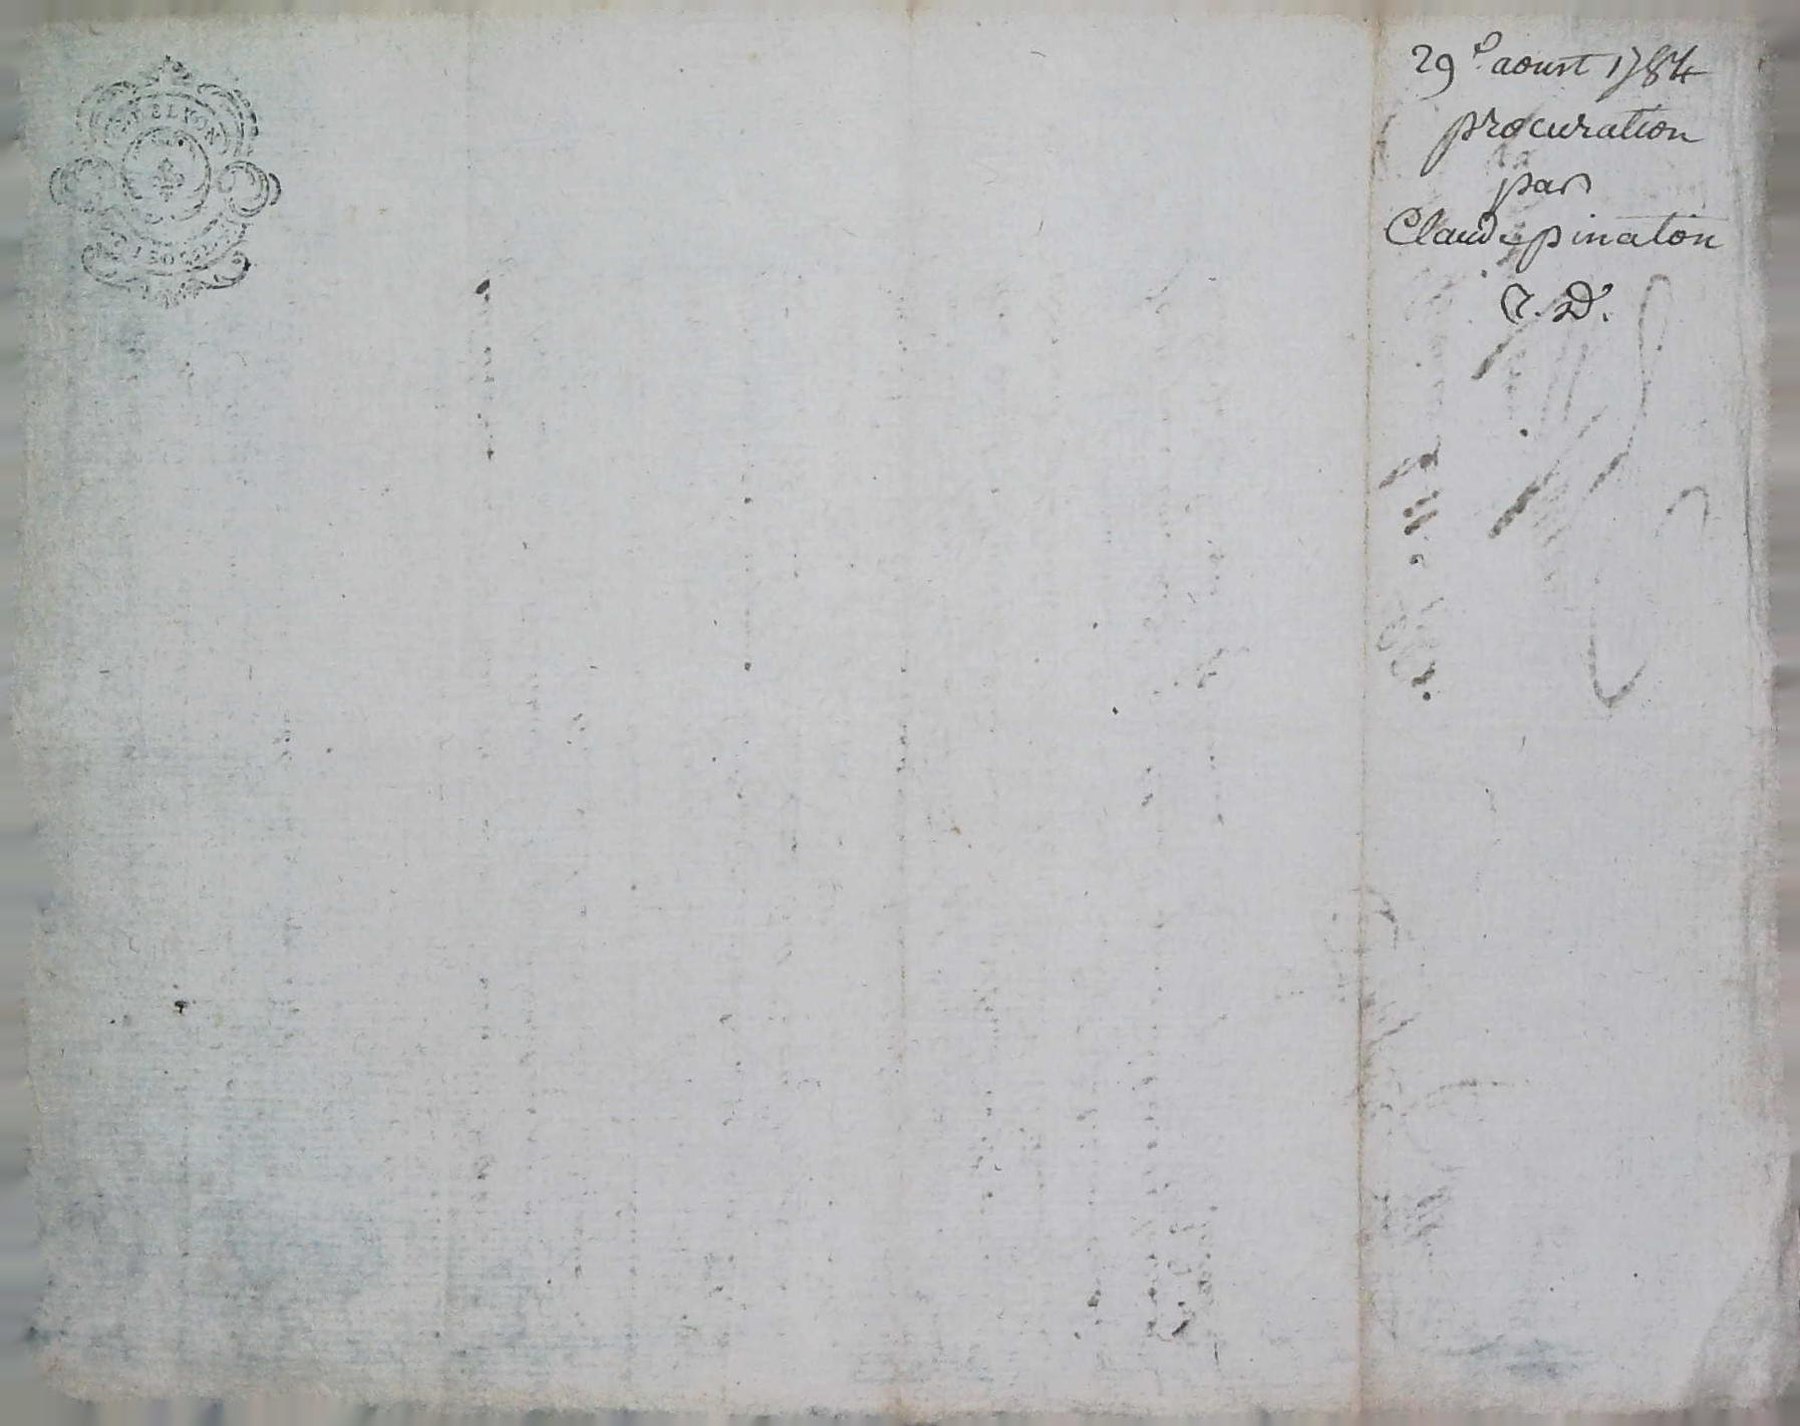 DE LYON
29e. aoust 1784
procuration
par
Claude pinaton
R. D.